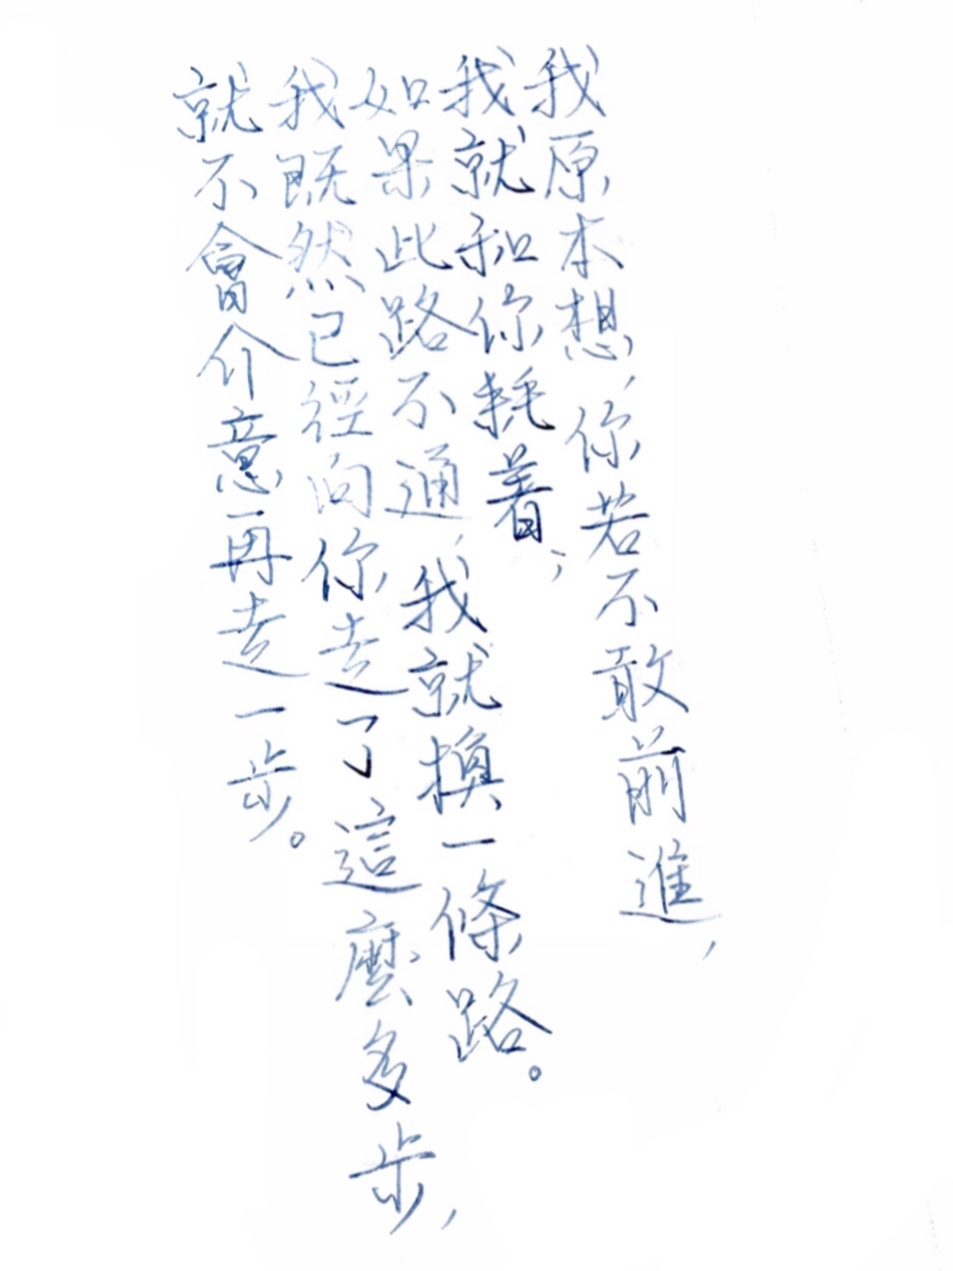 我原本想，你若不敢前進，
我就和你耗着；
如果此路不通，我就換一條路。
我既然已徑向你走了這麼多步，
就不會介意再走一步。